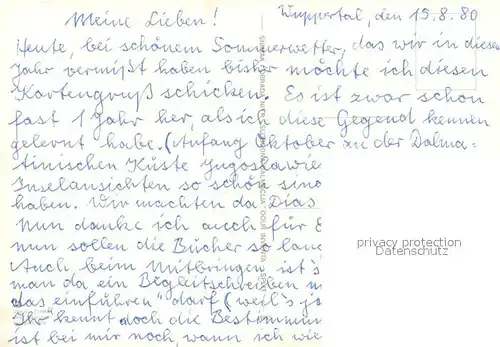 Meine Lieben! Wuppertal, den 15.8.80
Heute, bei schönem Sommerwetter, das wir in diesem
Jahr vermißt haben bisher möchte ich diesen
Kartengruß schicken. Es ist zwar schon
fast 1 Jahr her, als ich diese Gegend kennen
gelernt habe. (Anfang Oktober an der Dalma-
tinischen Küste Jugoslawie
Inselansichten so schön sind
haben. Wir machten da Dias
Nun danke ich auch für E
nun sollen die Bücher so lang
Auch, beim Mitbringen ist's
man da ein Begleitschreiben m
das einführen" darf (weil's ja
Ihr kennt doch die Bestimmun
ist bei mir noch, wann ich wie
privacy protection
Datenschutz